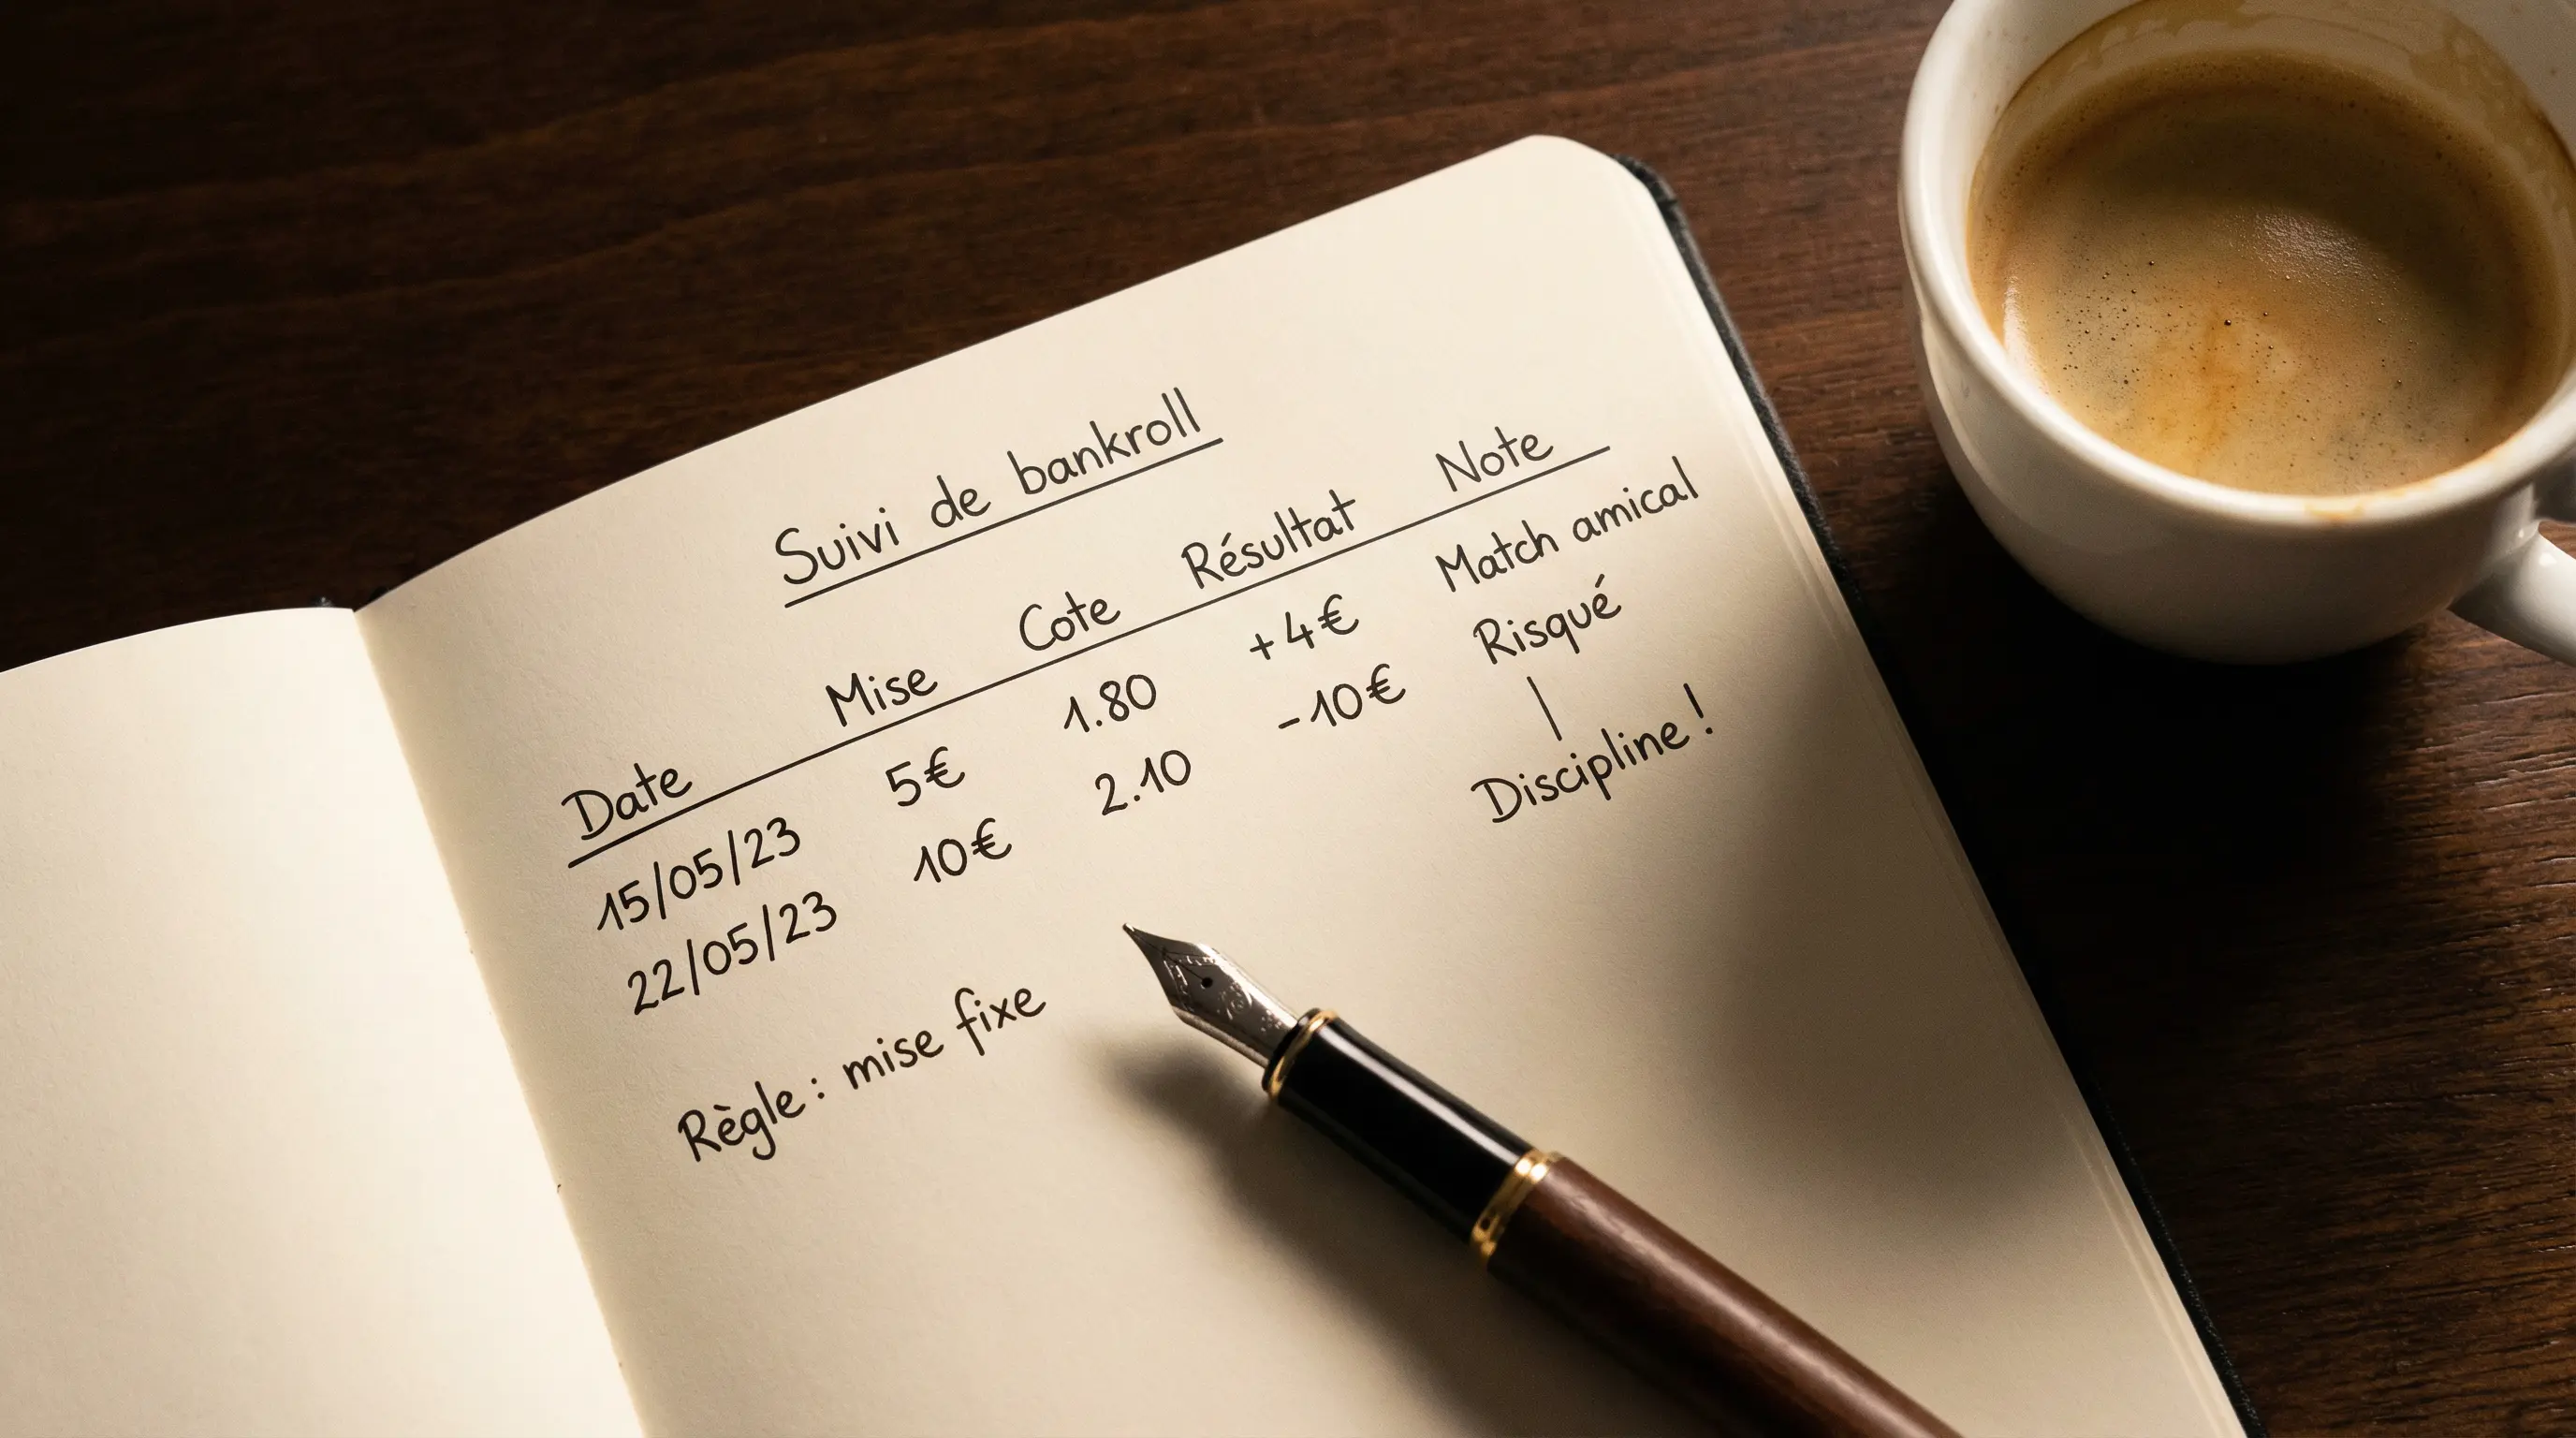 Suivi de bankroll
Date Mise Cote Résultat Note
15/05/23 5€ 1.80 +4€ Match amical
22/05/23 10€ 2.10 -10€ Risqué
|
Discipline !
Règle : mise fixe